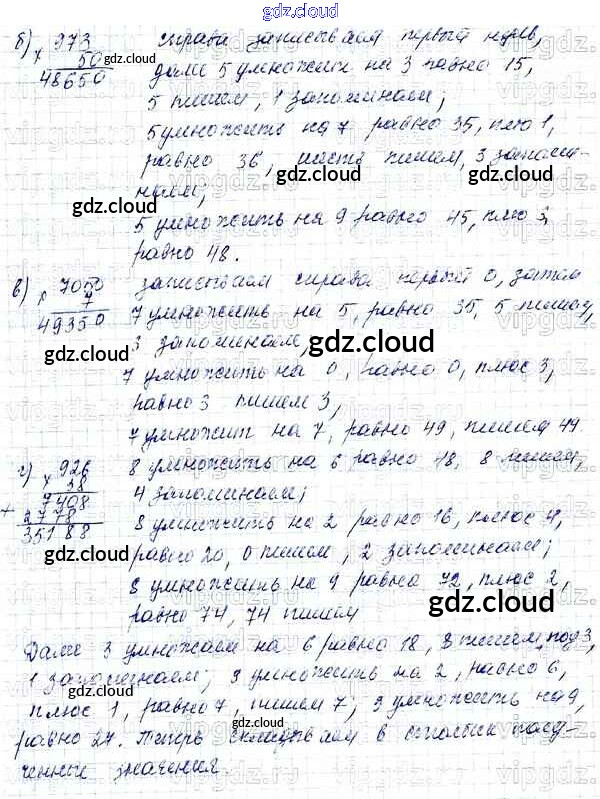 gdz.cloud
б) × 973 справа записываем первый нуль,
50 далее 5 умножить на 3 равно 15,
48650 5 пишем, 1 запоминаем;
5 умножить на 7 равно 35, плю 1,
равно 36, шесть пишем, 3 запоми-
наем;
5 умножить на 9 равно 45, плю 3,
равно 48.
в) × 7050 записываем справа первый 0, затем
7 7 умножить на 5, равно 35, 5 пишем,
49350 3 запоминаем,
7 умножить на 0, равно 0, плюс 3,
равно 3 пишем 3,
7 умножит на 7, равно 49, пишем 49
г) × 926 8 умножить на 6 равно 48, 8 пишем,
38 4 запоминаем;
+ 7408 8 умножить на 2 равно 16, плюс 4,
2778 равно 20, 0 пишем, 2 запоминаем;
35188 8 умножить на 9 равно 72, плюс 2,
равно 74, 74 пишем
Далее 3 умножаем на 6 равно 18, 8 пишем под 3,
1 запоминаем; 3 умножить на 2, равно 6,
плюс 1, равно 7, пишем 7; 3 умножить на 9,
равно 27. Теперь складываем в столбик полу-
ченные значения